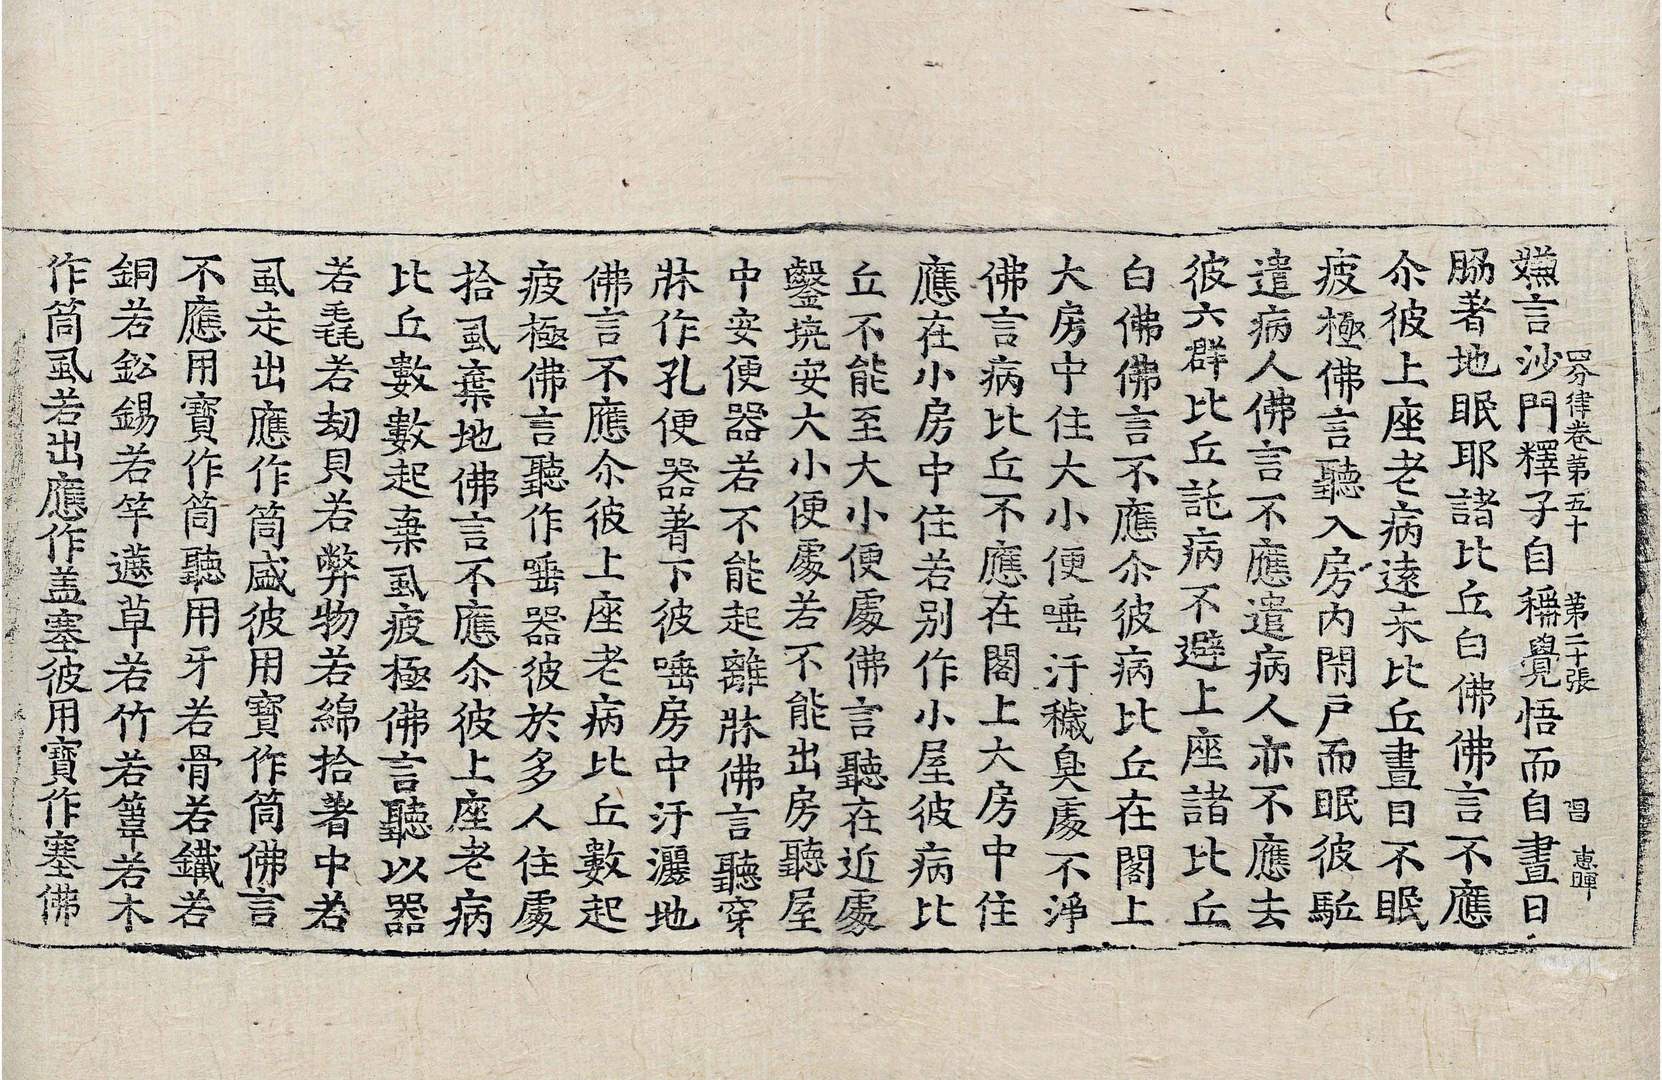 四分律卷第五十　第二十張　昌　惠暉
嫌言沙門釋子自稱覺悟而自晝日
脇著地眠耶諸比丘白佛佛言不應
尒彼上座老病遠來比丘晝日不眠
疲極佛言聽入房內閇戶而眠彼駈
遣病人佛言不應遣病人亦不應去
彼六群比丘託病不避上座諸比丘
白佛佛言不應尒彼病比丘在閣上
大房中住大小便唾汙穢臭處不淨
佛言病比丘不應在閣上大房中住
應在小房中住若別作小屋彼病比
丘不能至大小便處佛言聽在近處
鑿埦安大小便處若不能出房聽屋
中安便器若不能起離牀佛言聽穿
牀作孔便器著下彼唾房中汙灑地
佛言不應尒彼上座老病比丘數起
疲極佛言聽作唾器彼於多人住處
拾虱棄地佛言不應尒彼上座老病
比丘數數起棄虱疲極佛言聽以器
若毳若劫貝若弊物若綿拾著中若
虱走出應作筒盛彼用寶作筒佛言
不應用寶作筒聽用牙若骨若鐵若
銅若鈆錫若竿蔗草若竹若葦若木
作筒虱若出應作盖塞彼用寶作塞佛